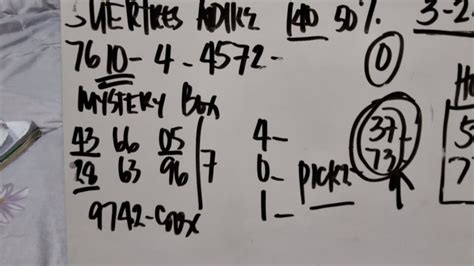 SUERTRES HOTTIE 140 50% 3-2
7610-4-4572- 0
MYSTERY BOX
43 66 05 7 4- 37
28 63 96 0- PICK2 73
9742-COOX 1-